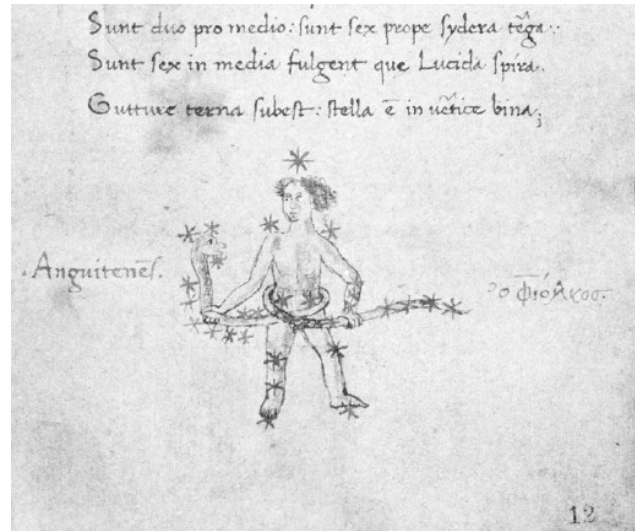 Sunt duo pro medio: sunt sex prope sydera tẽga:
Sunt sex in media fulgent que Lucida spira.
Gutture terna subest: stella ē in ũtice bina;
.Anguitenẽs.
12